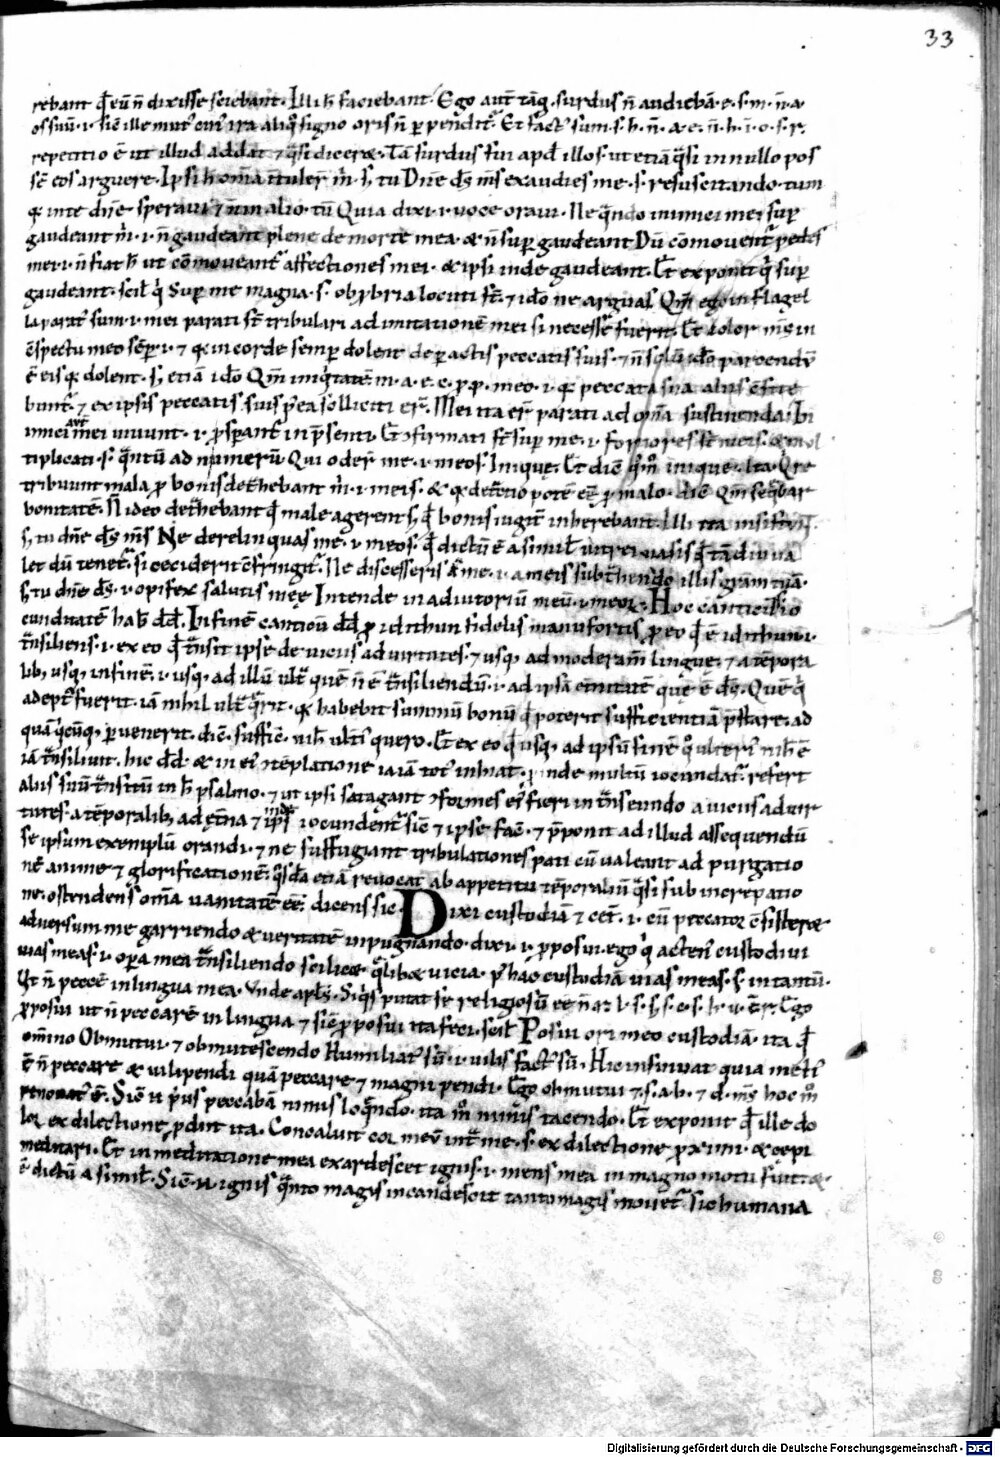 33
rebant qđ eū n̄ dixisse sciebant. Illi h̄ faciebant. Ego aut̄ tāq; surdus n̄ audiebā. e. s. m. n̄. a.
os suū. i. sic ille mut' cui' ira aliq° signo oris n̄ ꝑpendit᷑. Et fact' sum. s. h. n̄. a. e. n̄. h. i. o. s. r.
repetitio ē ut illud addat ⁊ q̄si diceret. Tā surdus fui apđ illos. ut etiā q̄si in nullo pos
sē eos arguere. Ipsi h̄ om̄a intuler̄ m̄. s; tu Dn̄e dꝰ m̄s exaudies me. s. resuscitando. tum
q; in te dn̄e speraui ⁊ n̄ in alio. tū Quia dixi. i. uoce oraui. Ne q̄ndo inimici mei suꝑ
gaudeant m̄. i. n̄ gaudeant plene de morte mea. & n̄ suꝑ gaudeant Dū cōmouent᷑ pedes
mei. i. n̄ fiat h̄ ut cōmoueant᷑ affectiones mei. & ipsi inde gaudeant. Et exponit qͥ suꝑ
gaudeant. scil' qͥ Suꝑ me magna. s. obꝓbria locuti st̄. ⁊ ido ne arguas Qm̄ ego in flagel
la parat' sum. i. mei parati st̄ tribulari ad imitationē mei si necesse fuerit. Et dolor m̄s in
ɔspectu meo sēꝑ. i. ⁊ q; in corde semꝑ dolent de ꝑactis peccatis suis. ⁊ n̄ solū ido parcendū
ē eis q; dolent. s; etiā ido Qm̄ iniqͥtatē m. a. e. c. p. p. meo. i. q; peccata sua aliis ɔfite
bunt᷑. ⁊ ex ipsis peccatis suis p̄ea solliciti er̄. Mei ita er̄ parati ad om̄a sustinenda. Ini
mici aut̄ mei uiuunt. i. ꝓsperant᷑ in p̄senti. Et ɔfirmati st̄ suꝑ me. i. fortiores st̄ meis. & mul
tiplicati. s. q̄ntū ad numerū Qui oder̄ me. i. meos. Inique. Et diē qͦm° inique. Ita. Q re
tribuunt mala ꝓ bonis detͬhebant m̄. i. meis. &
bonitatē. N̄ ideo detͬhebant qđ male agerent s; qđ bonis iugit᷑ inherebant. Illi ita
s; tu dn̄e dꝰ m̄s Ne derelinquas me. i. meos. qđ dictū ē a simil' uitrei uasis qđ tādiu ua
let dū tenet᷑. si ceciderit ɔfringit᷑. Ne discesseris a me. i. a meis subtͬhendo illis grām tuā.
s; tu dn̄e dꝰ. i. opifex salutis meę Intende in adiutoriū meū. i. meor. Hoc canticū
cunditatē hab' dđ. In finē canticū dđ ꝓ idithun fidelis manufortis. ꝓ eo qđ ē idithun. i.
tͬnsiliens. i. ex eo qđ tͬnsit ipse de uiciis ad uirtutes. ⁊ usq; ad moderam̄ linguę. ⁊ a tēpora
lib; usq; in finē. i. usq; ad illū ultͬ quē n̄ ē tͬnsiliendū. i. ad ipsā et̄nitatē quę ē dꝰ. Quē qͥ
adept' fuerit. iā nihil ultͬ q̄rit. q; habebit summū bonū qđ poterit sufficientiā p̄stare. ad
quā qͥcūq; ꝑuenerit. dic. suffic̄. nih' ult' quero. Et ex eo qđ usq; ad ipsū finē qͦ ulteri' nih' ē
iā tͬnsiliuit. hic dđ. & in ei' ɔtēplatione ia iā tot' inhiat. ꝓinde multū iocundat᷑. refert
aliis suū tͬnsitū in h̄ psalmo. ⁊ ut ipsi satagant ɔformes ei' fieri in tͬnseundo a uiciis ad uir
tutes. a tēporalib; ad et̄na ⁊ inde ips̄ iocundent᷑ sic ⁊ ipse fac̄. ⁊ p̄ponit ad illud assequendū
se ipsum exemplū orandi. ⁊ ne suffugiant tribulationes pati cū ualeant ad purgatio
nē anime ⁊ glorificationē. qͦsdā etiā reuocat ab appetitu tēporaliū q̄si sub increpatio
ne. ostendens om̄a uanitatē eē. dicens sic. Dixi custodiā ⁊ cet̄. i. cū peccator ɔsisteret
aduersum me garriendo & ueritatē inpugnando. dixi. i. ꝓposui. ego qͥ acten' custodiui
uias meas. i. oꝑa mea tͬnsiliendo scilicet q̄libet uicia. p' hac custodiā uias meas. s. in tantū.
Ut n̄ peccē in lingua mea. Unde apl's. Siqͥs putat se religiosū eē n̄ Ego
ꝓposui ut n̄ peccarē in lingua ⁊ sic ꝓposui ita feci. scil' Posui ori meo custodiā. ita qđ
om̄ino Obmutui. ⁊ obmutescendo Humiliat' sū. i. uilis fact' sū. Hic insinuat quia meli'
ē n̄ peccare & uilipendi quā peccare ⁊ magni pendi. Ego obmutui ⁊ s. a. b. ⁊ d. m̄s hoc m°
renouat' ē. Sic n̄ p'us peccabā nimis loq̄ndo. ita m° nimis tacendo. Et exponit qđ ille do
lor ex dilectione ꝓdiit ita. Concaluit cor meū intͬ me. s. ex dilectione ꝓximi. & cepi
meditari. Et in meditatione mea exardescet ignis. i. mens mea in magno motu fuit. &
ē dictū a simil'. Sic n̄ ignis q̄nto magis incandescit tanto magis mouet᷑ sic humana
Digitalisierung gefördert durch die Deutsche Forschungsgemeinschaft - DFG